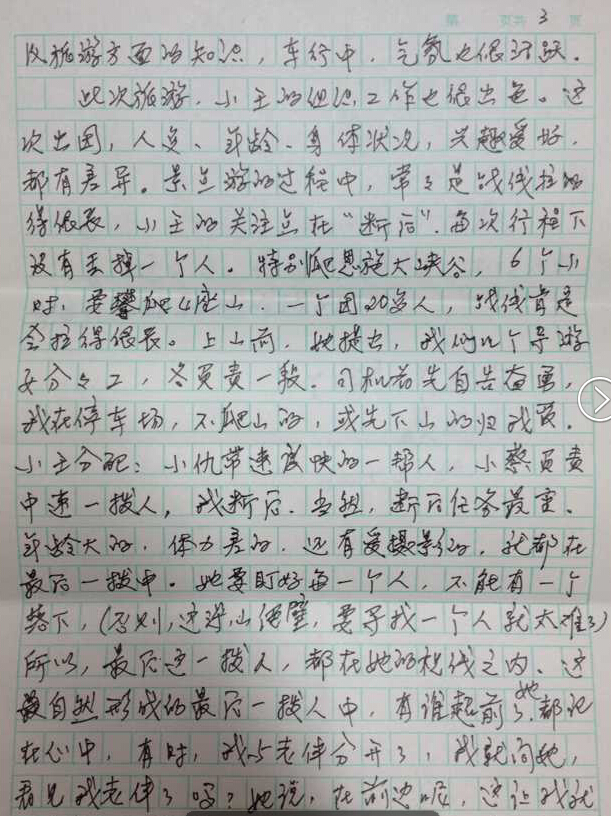 第 页共 3 页
及旅游方面的知识，车行中，气氛也很活跃。
此次旅游，小王的组织工作也很出色。这
次出国，人员、年龄、身体状况，兴趣爱好，
都有差异。景点游的过程中，常常是战线拉的
得很长，小王的关注点在“断后”，每次行程下
没有丢掉一个人。特别爬恩施大峡谷，6个小
时，要攀爬4座山，一个团20多人，战线肯定
会拉得很长。上山前，她提出，我们几个导游
要分分工，各负责一段。司机首先自告奋勇，
我在停车场，不爬山的，或先下山的归我负。
小王分配：小仇带速度快的一帮人，小蔡负责
中速一拨人，我断后。当然，断后任务最重。
年龄大的，体力差的，还有爱摄影的，就都在
最后一拨中。她要盯好每一个人，不能有一个
落下，（否则，这深山僻壁，要寻找一个人就太难了）
所以，最后这一拨人，都在她的视线之内、这
最自然形成的最后一拨人中，有谁超前了，她都记
在心中，有时，我与老伴分开了，我就问她，
看见我老伴了吗？她说，在前边呢，这让我就